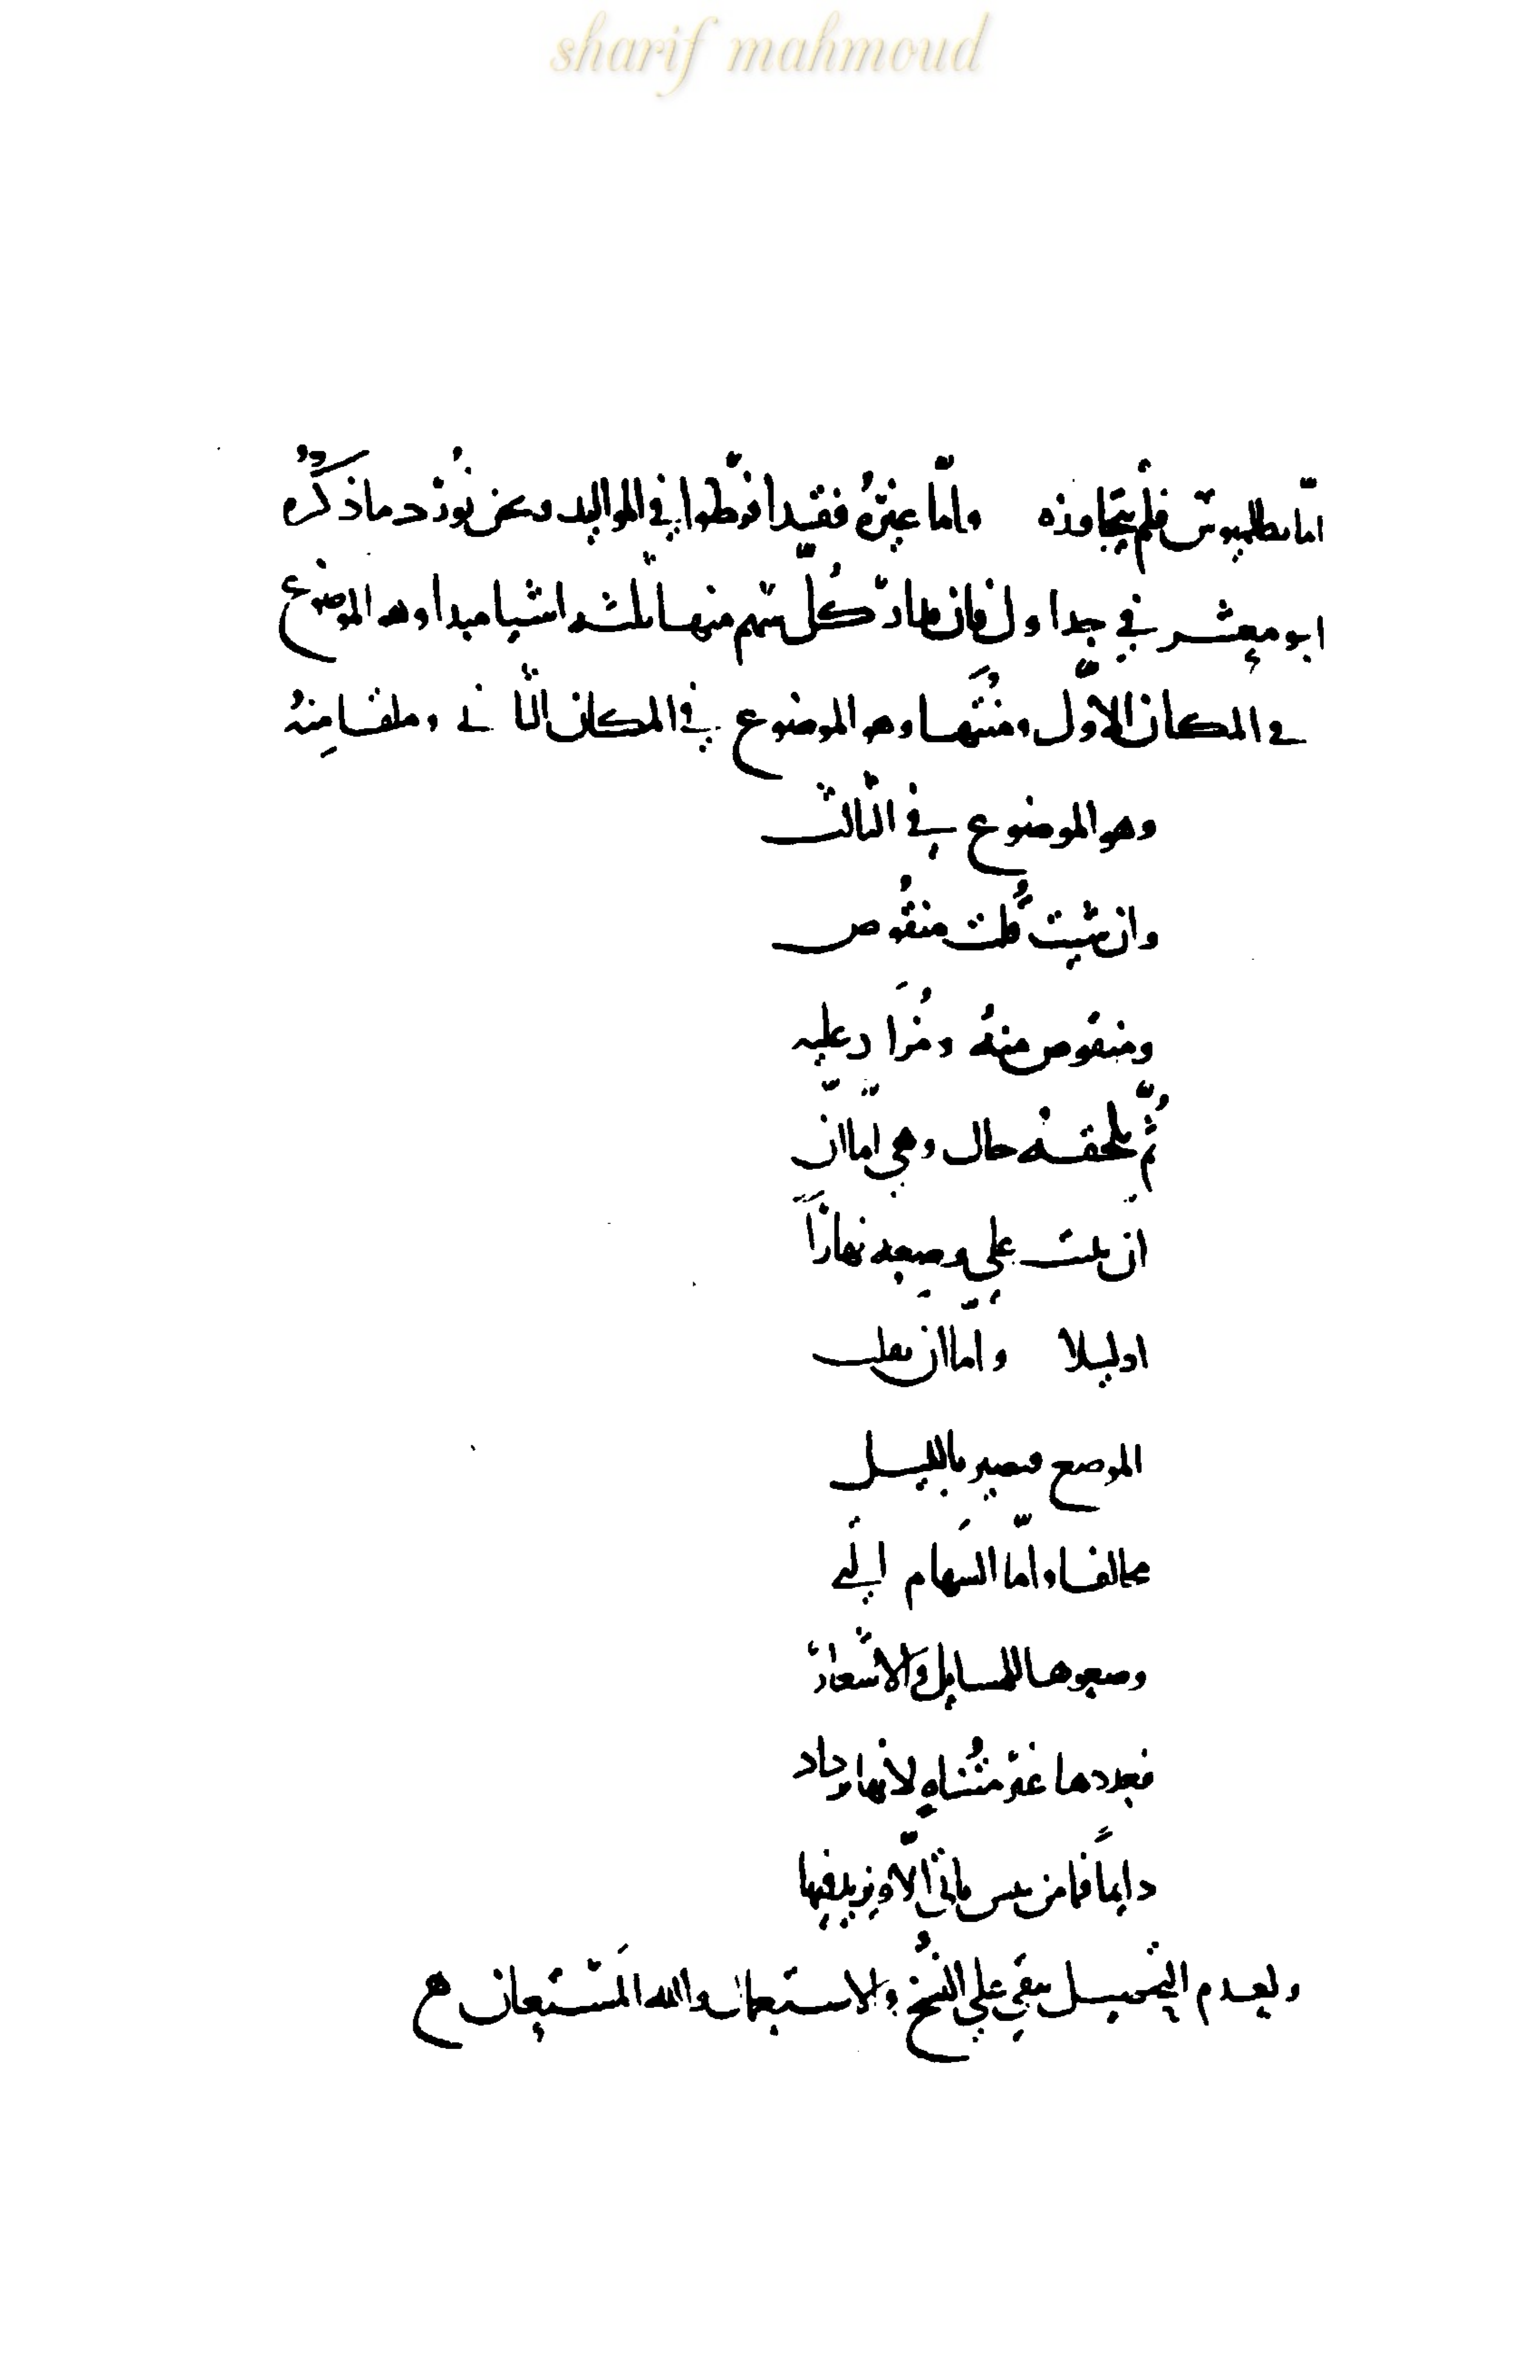 sharif mahmoud
اما بطلميوس فلم يتجاوزه واما غيره فقد افرطوا في المواليد ونحن نورد ما ذكره
ابو معشر في جداول فان مدار كل سهم منها ثلثه اشيا مبدا وهو الموضوع
في المكان الاول ومنتها وهو الموضوع في المكان الثاني وملقا منه
وهو الموضوع في الثالث
وان شيت قلت منقوص
ومنقوص منه ومزاد عليه
ثم يلحقه حال وهي اما ان
ان يثبت على وضعه نهارا
او ليلا واما ان يقلب
الموضع فيصير بالليل
مخالفا واما السهام التي
وضعوها للمسايل والاسعار
فعددها غير متناه لانها تزداد
دايما فما من ياتي الا ويزيد فيها
ولعدم التحصيل بقي على النسخ والاستعمال والله المستعان